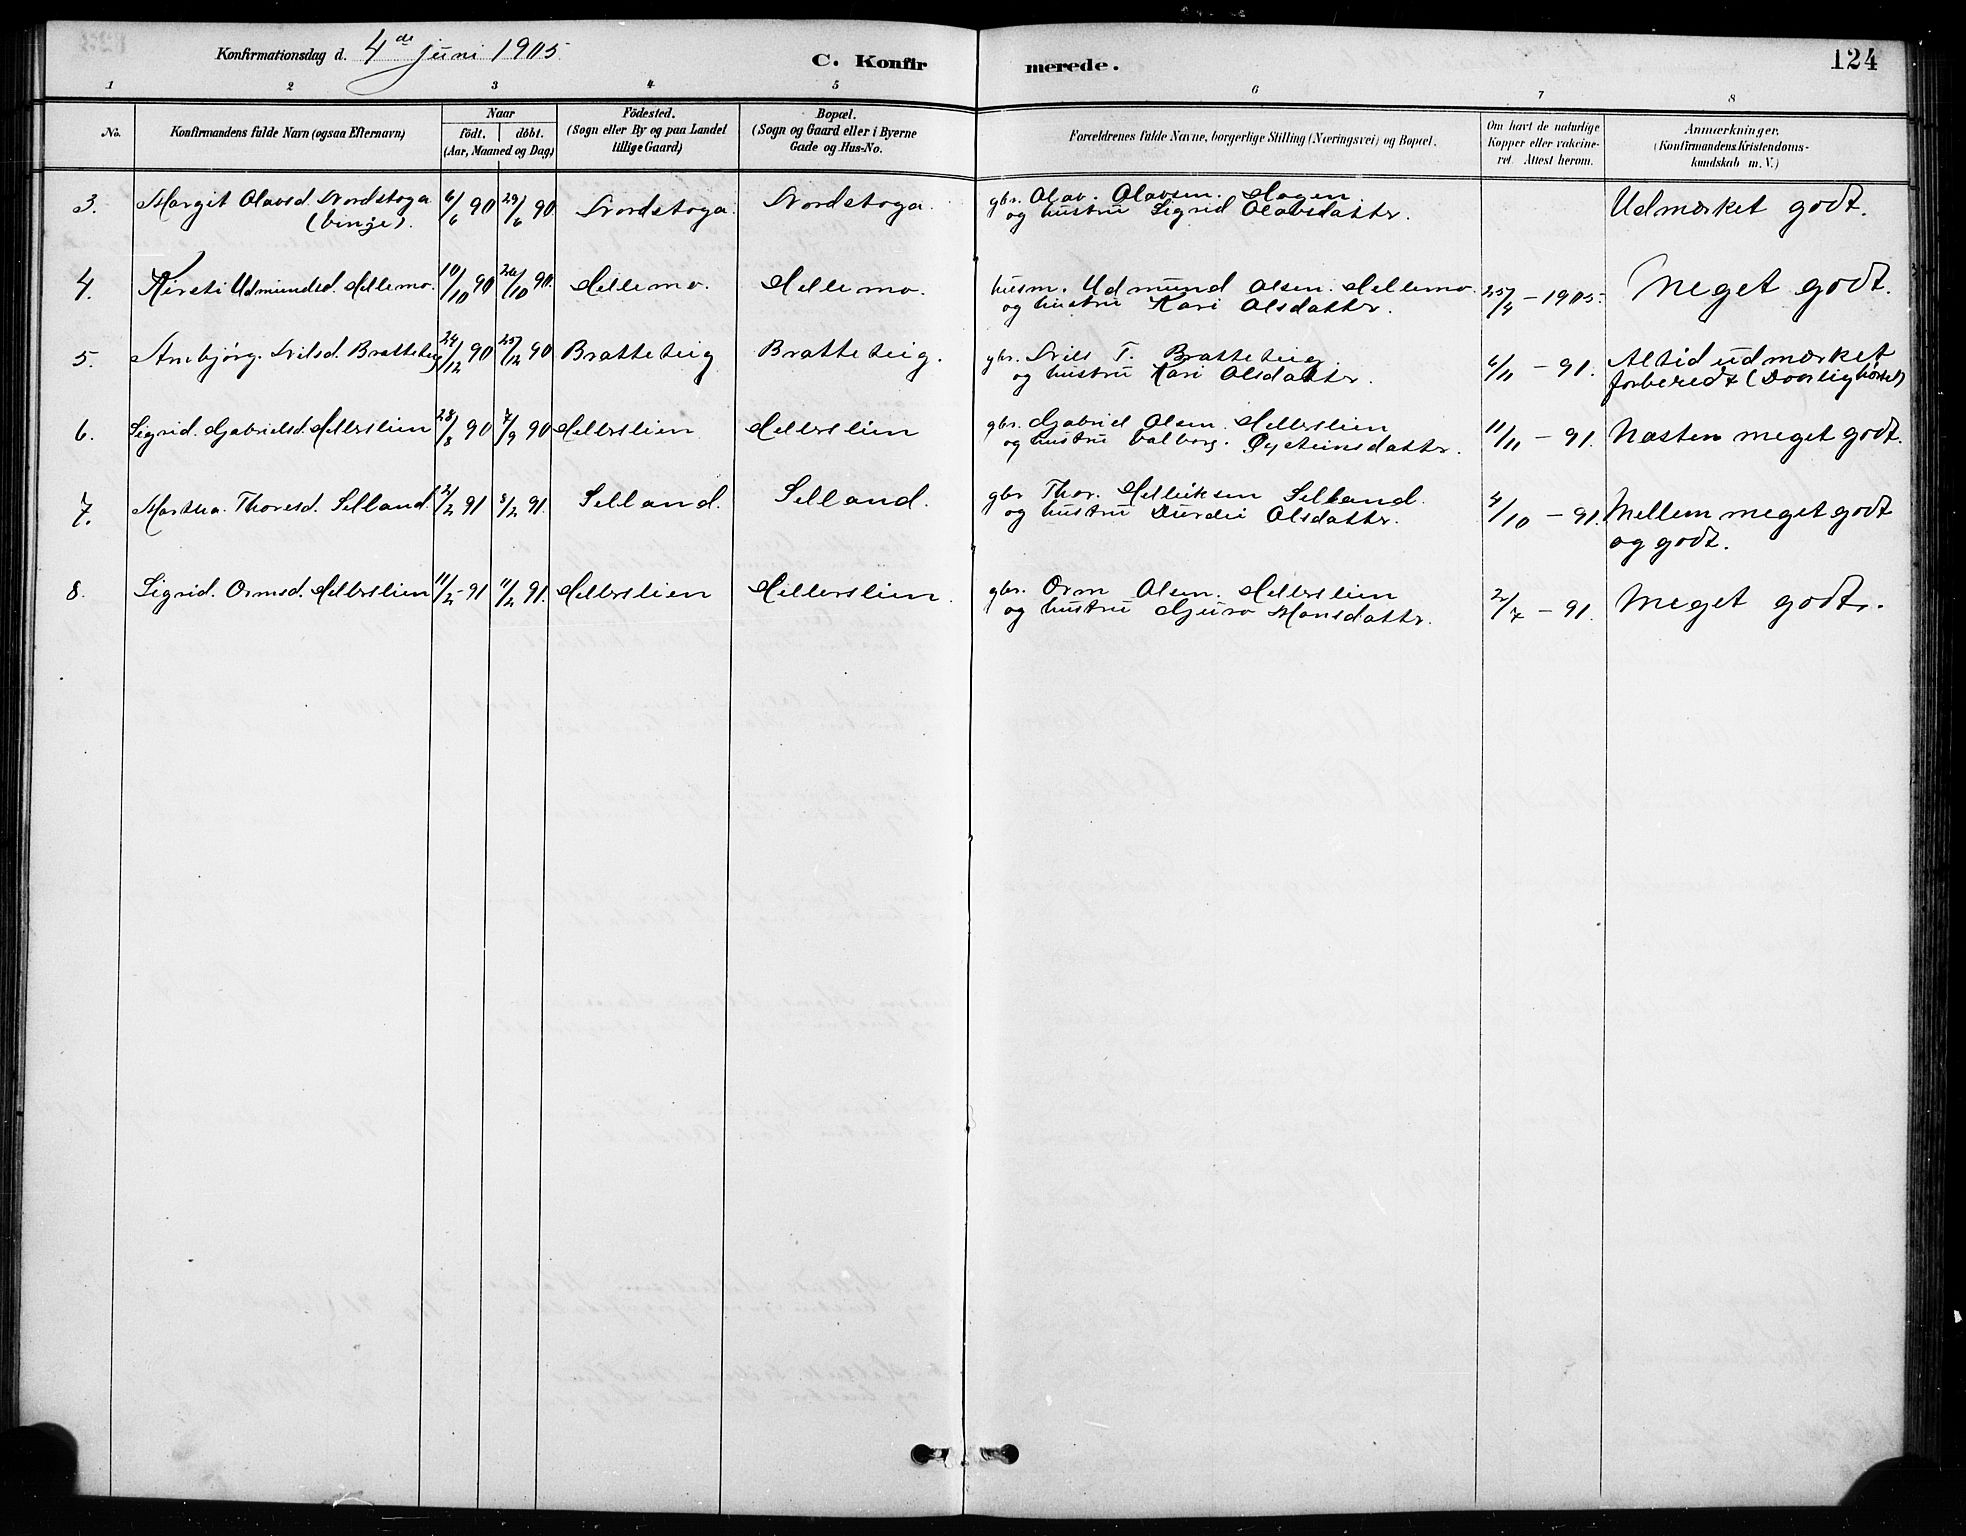 Konfirmationsdag d. 4de juni 1905
C. Konfirmerede.
124
1 2 3 4 5 6 7 8
No.
Konfirmandens fulde Navn (ogsaa Efternavn)
Naar
födt. döbt.
(Aar, Maaned og Dag)
Födested.
(Sogn eller By og paa Landet
tillige Gaard)
Bopæl.
(Sogn og Gaard eller i Byerne
Gade og Hus-No.
Forældrenes fulde Navne, borgerlige Stilling (Næringsvei) og Bopæl.
Om havt de naturlige
Kopper eller vakcine-
ret. Attest herom.
Anmærkninger.
(Konfirmandens Kristendoms-
kundskab m. V.)
3. Margit Olavsd. Nordstoga 6/6 90 29/6 90 Nordstoga. Nordstoga. gbr. Olav. Olavsen. Hagen Udmærket godt.
(Vinje). og hustru Sigrid Olavsdattr.
4. Kirsti Udmundsd. Hellemo. 10/10 90 26/10 90. Hellemo. Hellemo. husm. Udmund Olsen. Hellemo 25/4 - 1905. Meget godt.
og hustru Kari Olsdattr.
5. Anbjörg. Nilsd. Bratteteig 24/12 90 25/12 90 Bratteteig Bratteteig. gbr. Nils T. Bratteteig. 6/11 - 91. Altid udmærket
og hustru Kari Olsdattr. forberedt (Daarlig hörsel)
6. Sigrid. Gabrielsd. Hellerslien 28/8 90 7/9 90 Hellerslien Hellerslien gbr. Gabriel Olsen. Hellerslien 11/11 - 91. Næsten meget godt.
og hustru Valborg. Øysteinsdattr.
7. Martha. Thoresd. Selland. 2/2 91 8/2 91. Selland. Selland. gbr Thor. Helliksen Selland. 4/10 - 91. Mellem meget godt
og hustru Durdei Olsdattr. og godt.
8. Sigrid. Ormsd. Hellerslien 11/2 - 91 11/2 91. Hellerslien Hellerslien. gbr. Orm Olsen. Hellerslien 2/7 - 91. Meget godt.
og hustru Gjuro Monsdattr.